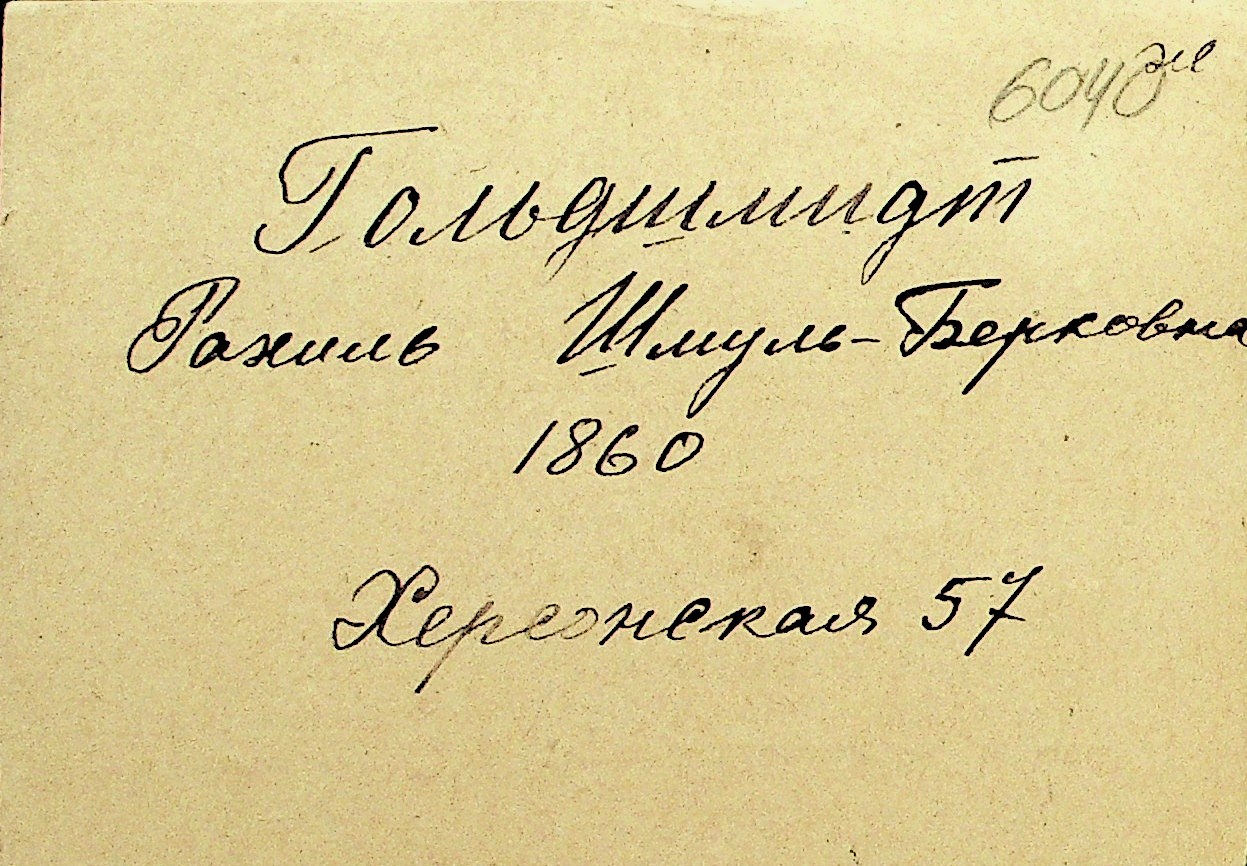 Гольдшмидт
Рахиль Шмуль-Берковна
1860
Херсонская 57